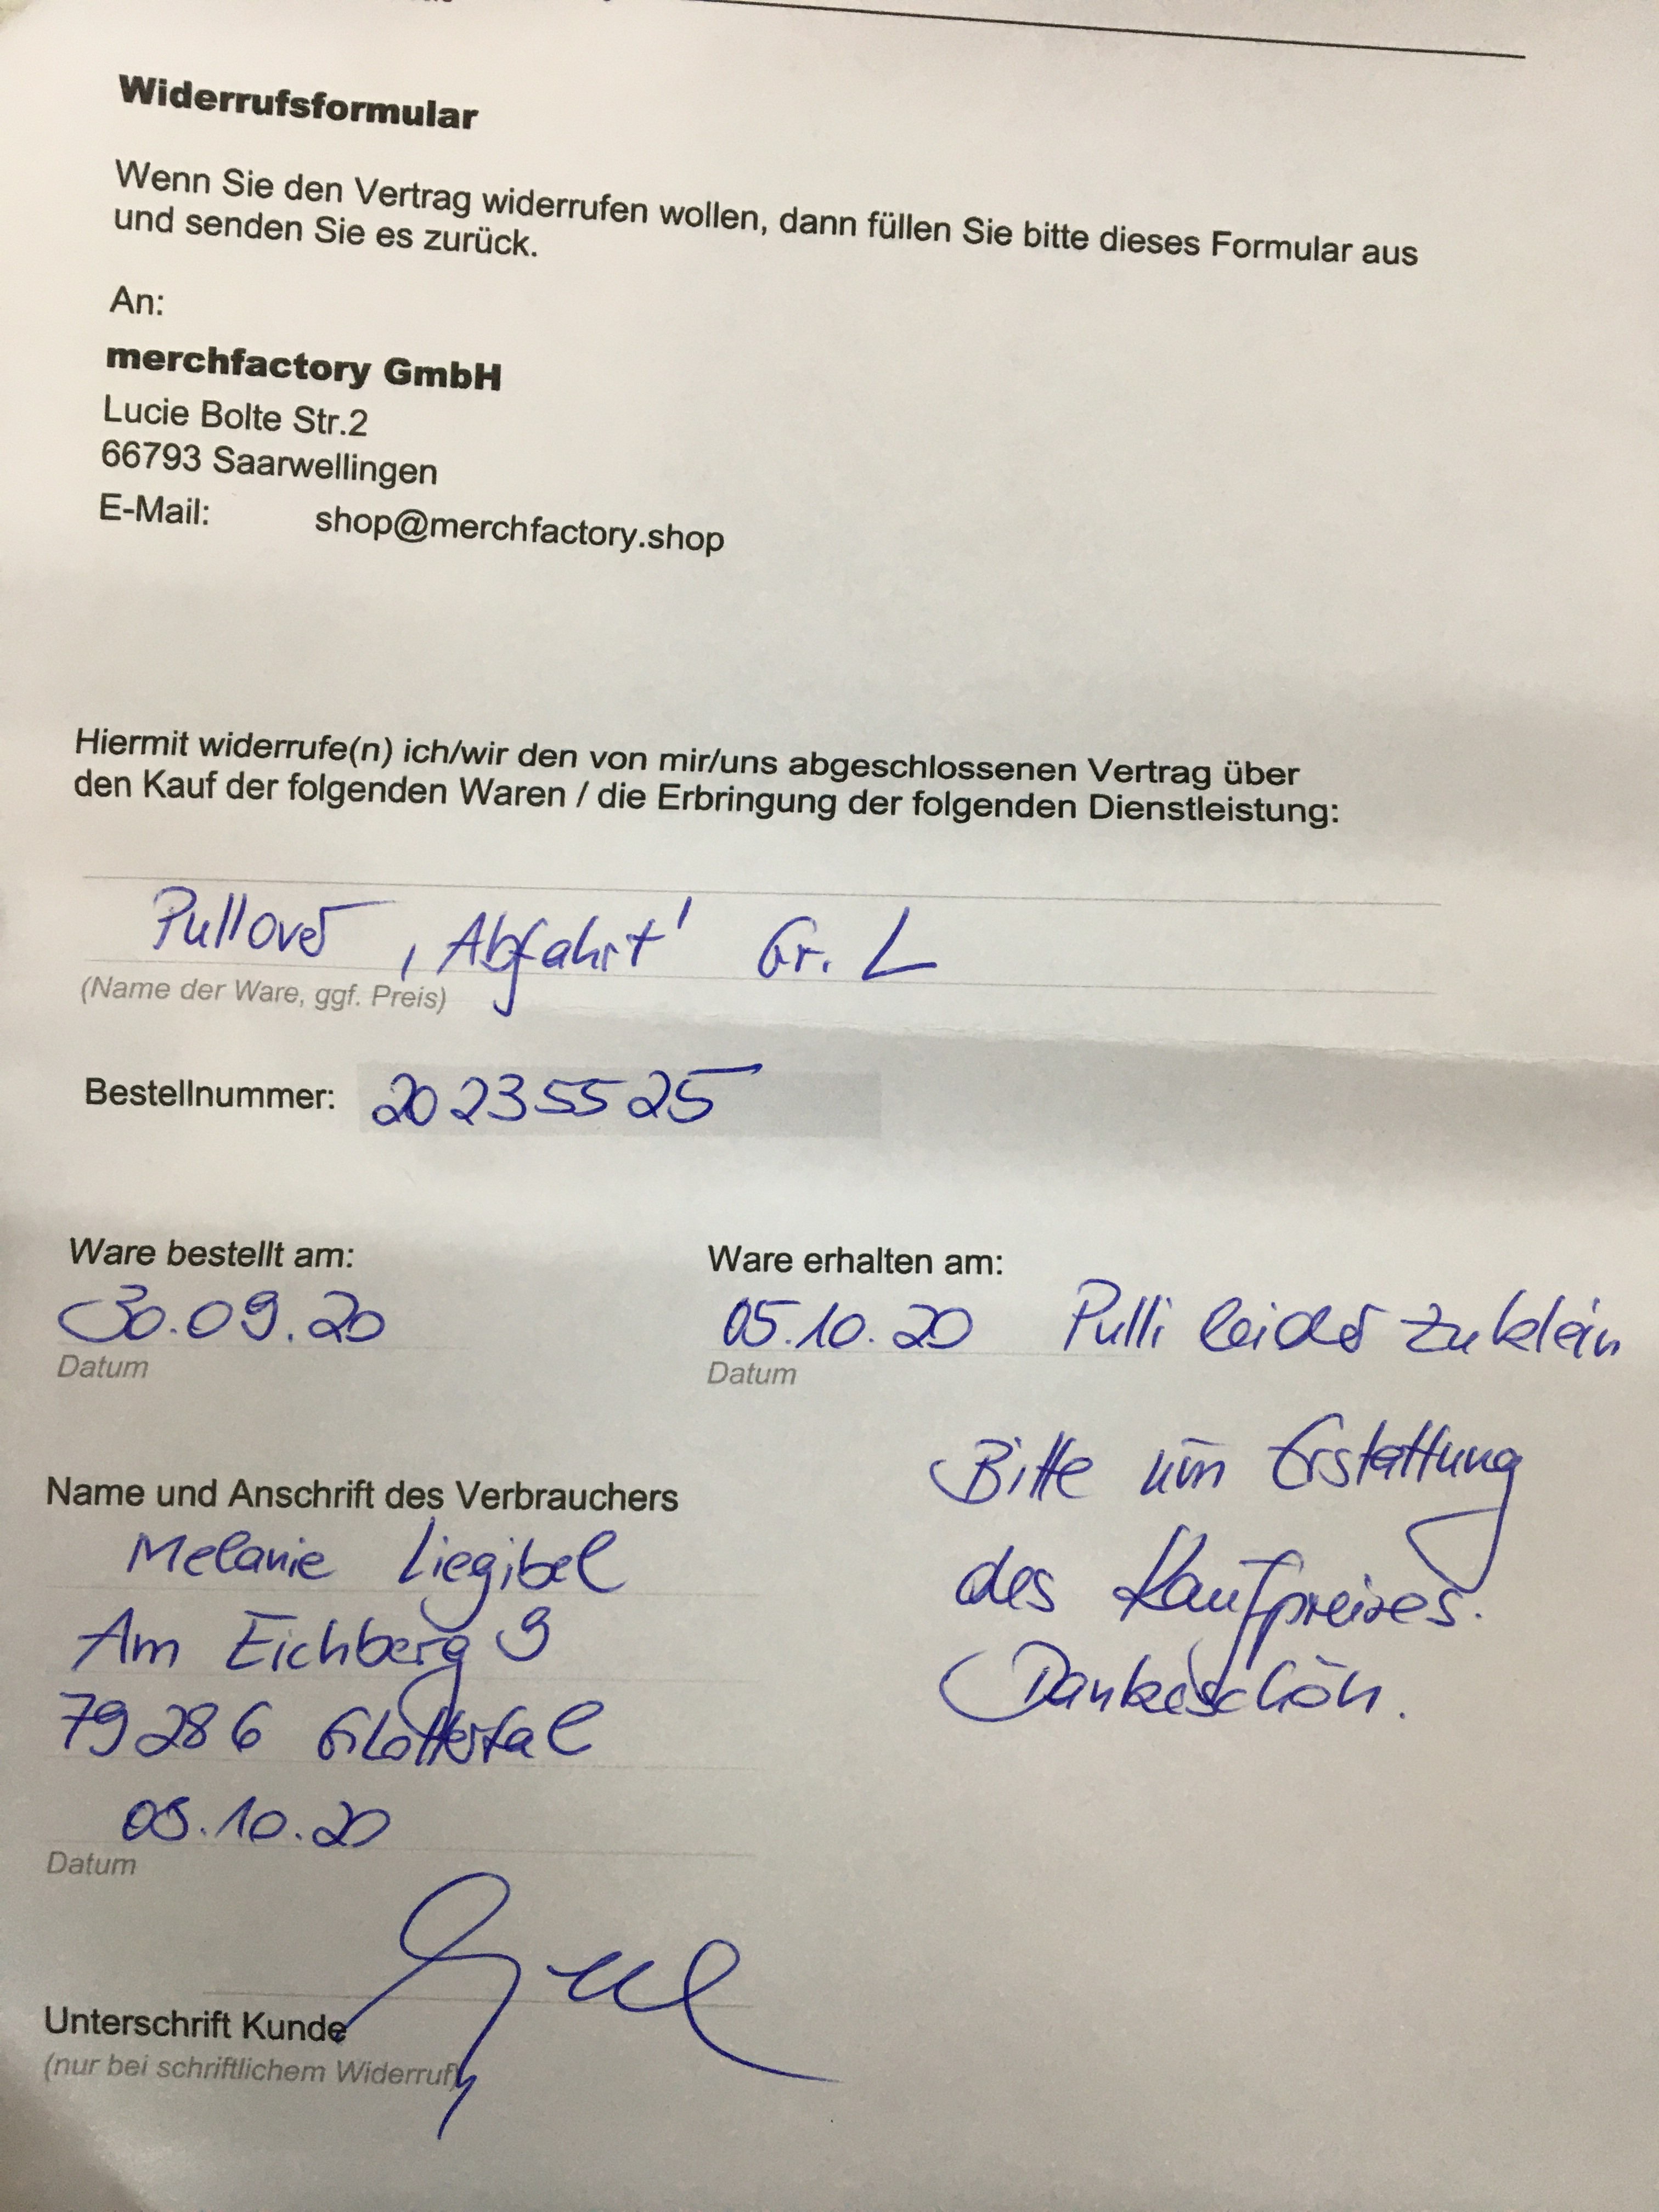 Widerrufsformular
Wenn Sie den Vertrag widerrufen wollen, dann füllen Sie bitte dieses Formular aus
und senden Sie es zurück.
An:
merchfactory GmbH
Lucie Bolte Str.2
66793 Saarwellingen
E-Mail: shop@merchfactory.shop
Hiermit widerrufe(n) ich/wir den von mir/uns abgeschlossenen Vertrag über
den Kauf der folgenden Waren / die Erbringung der folgenden Dienstleistung:
Pullover ‚Abfahrt' Gr. L
(Name der Ware, ggf. Preis)
Bestellnummer: 20235525
Ware bestellt am:
30.09.20
Datum
Ware erhalten am:
05.10.20 Pulli leider zu klein
Datum
Bitte um Erstattung
des Kaufpreises.
Dankeschön.
Name und Anschrift des Verbrauchers
Melanie Liegibel
Am Eichberg 9
79286 Glottertal
.10.20
Datum
Unterschrift Kunde
(nur bei schriftlichem Widerruf)